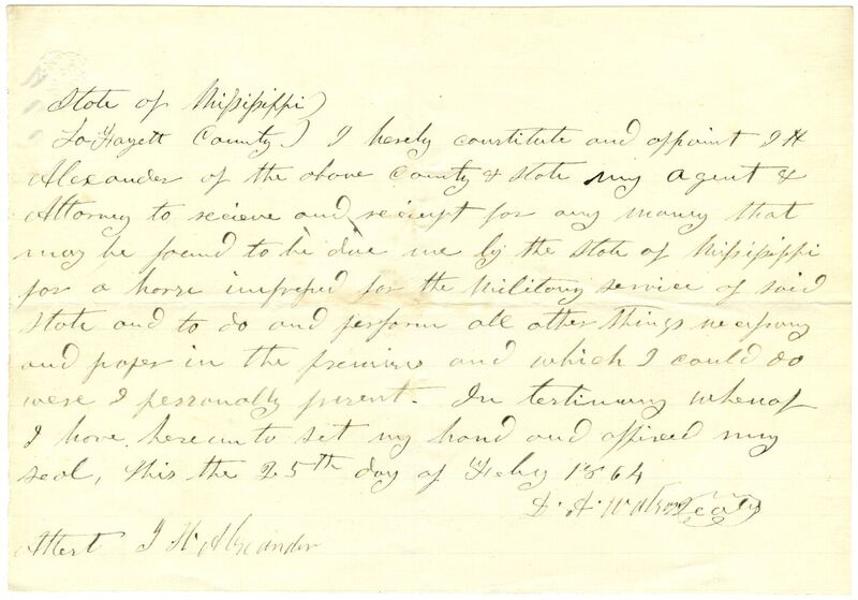 State of Mississippi)
LaFayett County.) I hereby constitute and appoint J H
Alexander of the above County & State my agent &
Attorney to recieve and receipt for any money that
may be found to be due me by the State of Mississippi
for a horse impressed for the Military service of said
State and to do and perform all other things necessary
and proper in the premises and which I could do
were I personally present. In testimony whereof
I have hereunto set my hand and affixed my
seal, this the 25th day of Feby 1864
D. A. (Seal)
Attest J H Alexander